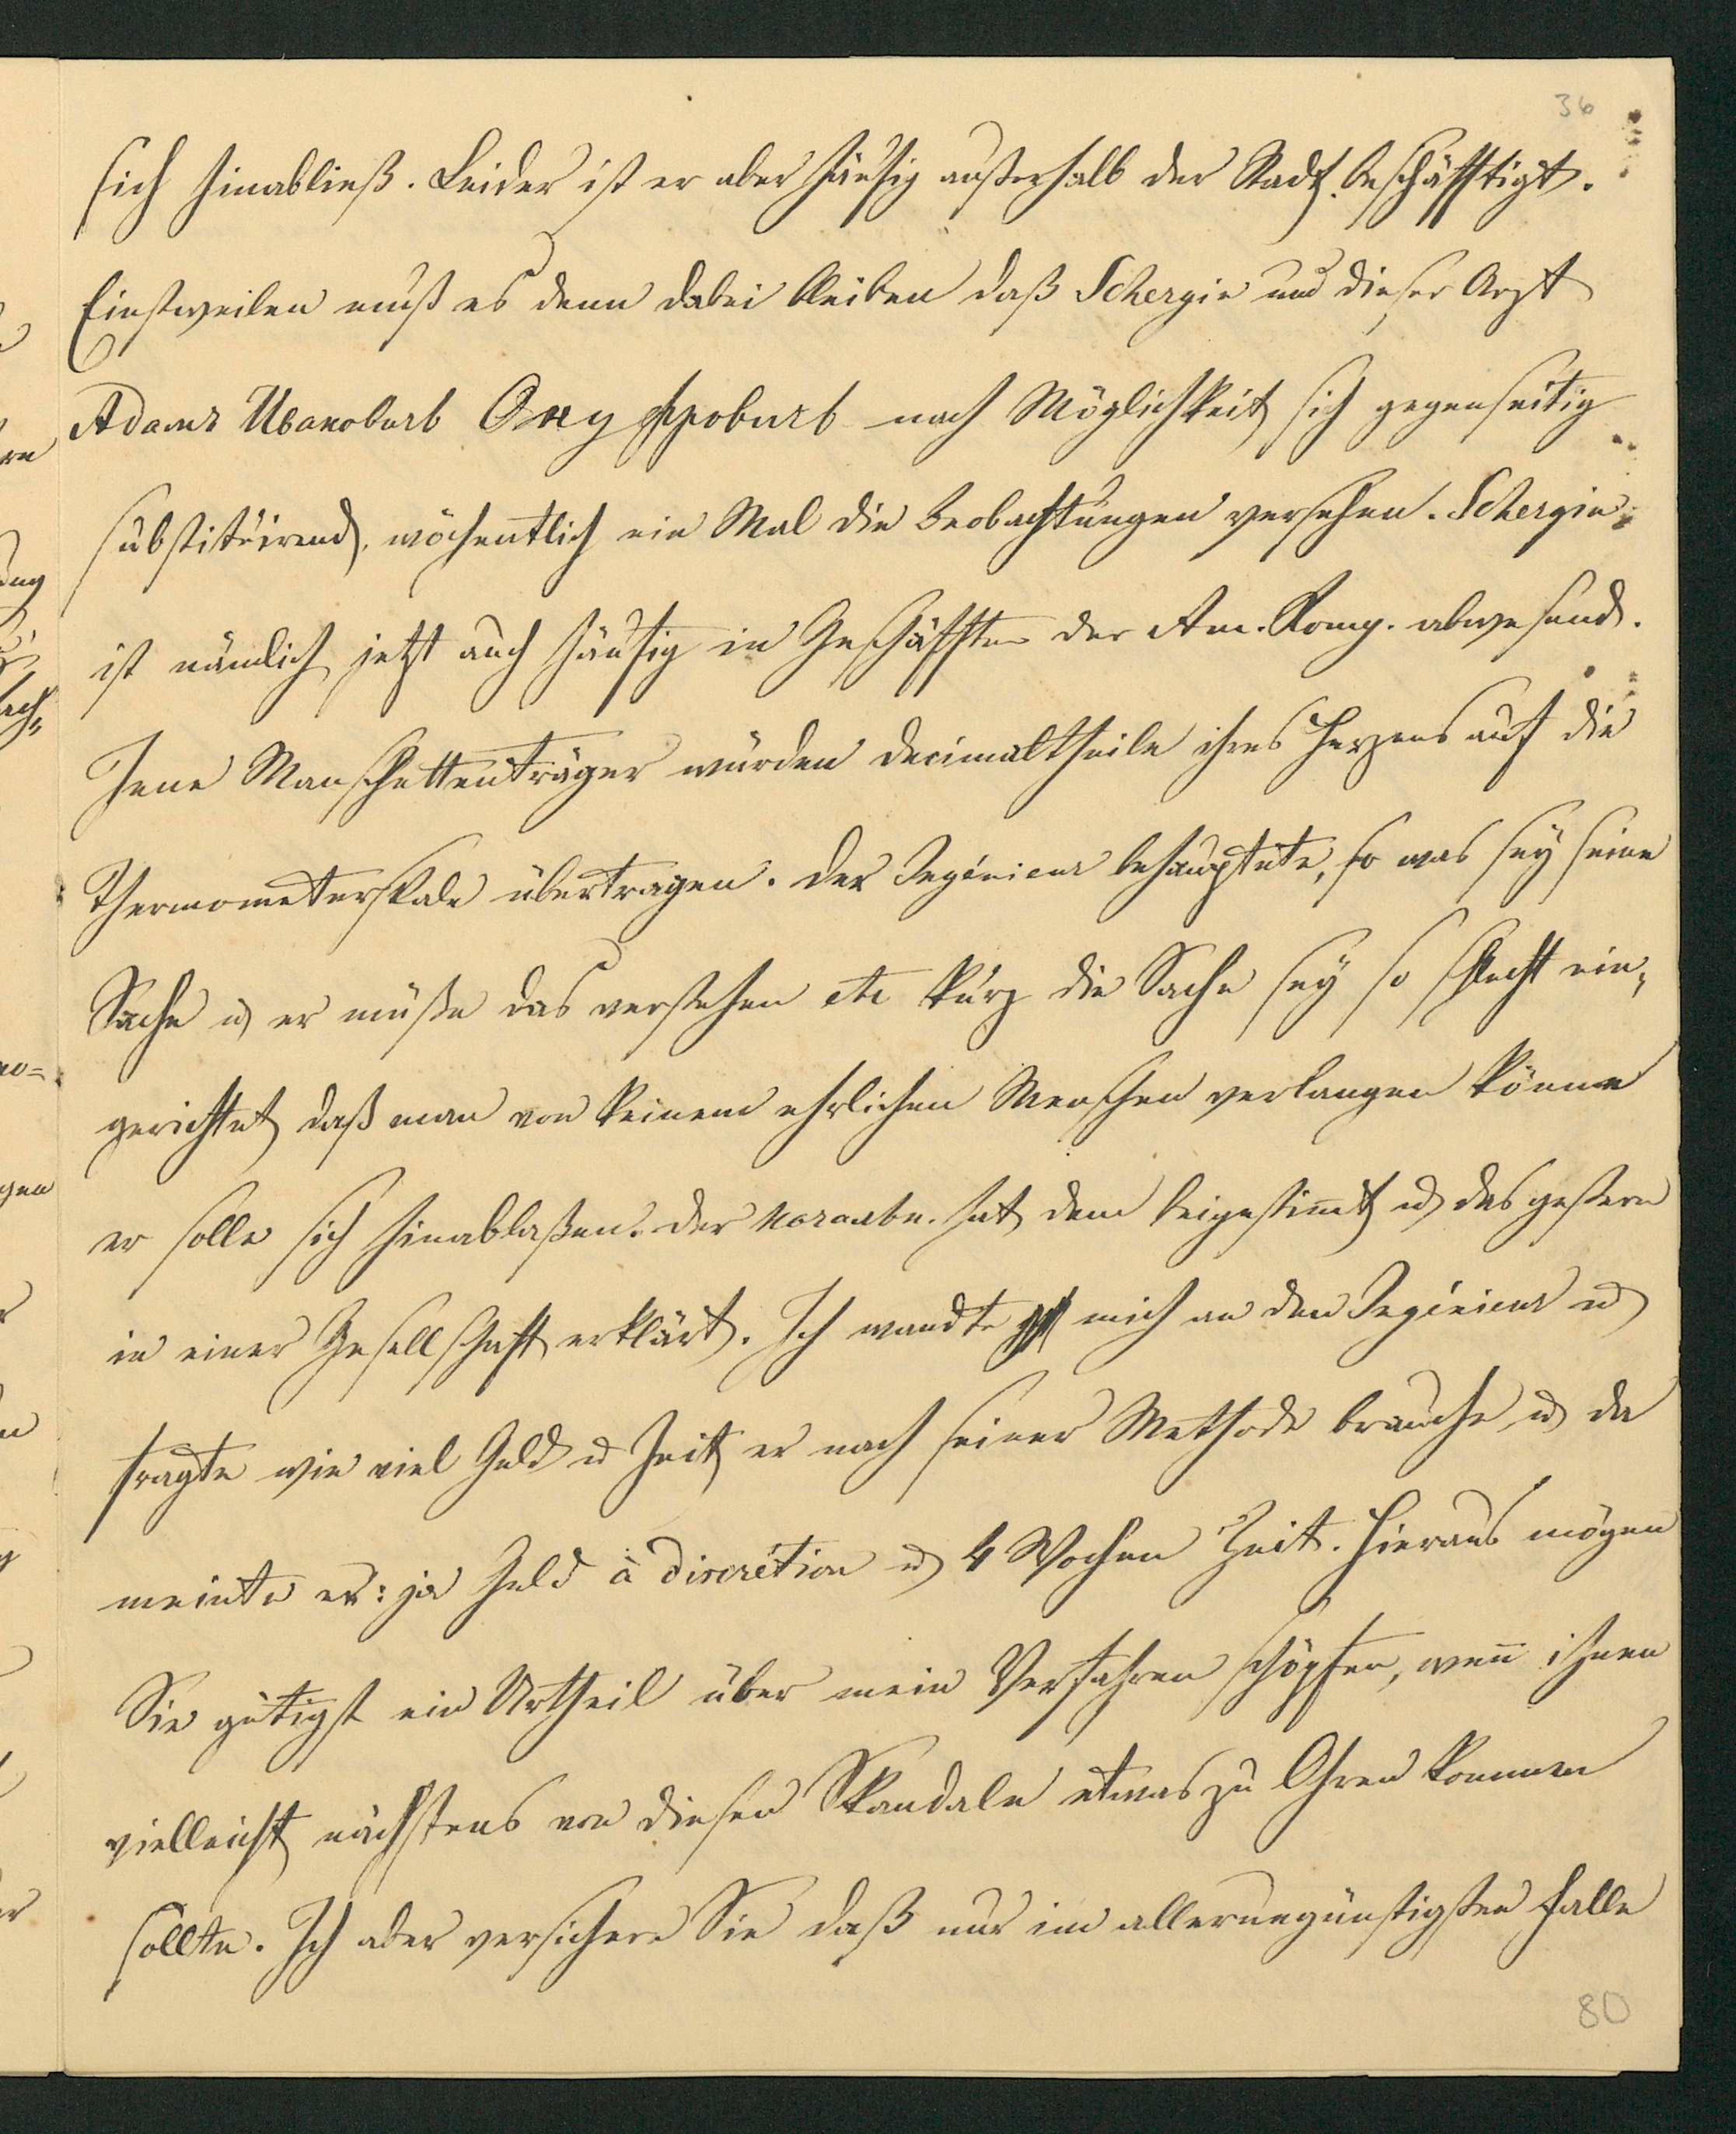 36
sich hinabließ. Leider ist er aber häufig außerhalb der Stadt beschäfftigt.
Einstweilen muß es denn dabei bleiben daß Schergin und dieser Arzt
Адамъ Ивановичъ Онуфровичъ nach Möglichkeit sich gegenseitig
substituirend, wöchentlich ein Mal die Beobachtungen versehen. Schergin
ist nämlich jetzt auch häufig in Geschäfften der Am. Komp. abwesend.
Jene Manschettenträger würden Decimaltheile ihres Herzens auf die
Thermometerskale übertragen. Der Ingénieur behauptete, so was sey seine
Sache u er müße das verstehen etc kurz die Sache sey so schlecht ein-
gerichtet daß man von keinem ehrlichen Menschen verlangen könne
er solle sich hinablaßen. Der hat dem beigestimt u das gestern
in einer Gesellschaft erklärt. Ich wandte mich an den Ingénieur u
fragte wie viel Geld u Zeit er nach seiner Methode brauche, u da
meinte er: ja Geld à discrétion u 4 Wochen Zeit. Hieraus mögen
Sie gütigst ein Urtheil über mein Verfahren schöpfen, wen̄ ihnen
vielleicht nächstens von diesen Skandale etwas zu Ohren kommen
sollte. Ich aber versichere Sie daß nur im allerungünstigsten Falle
80